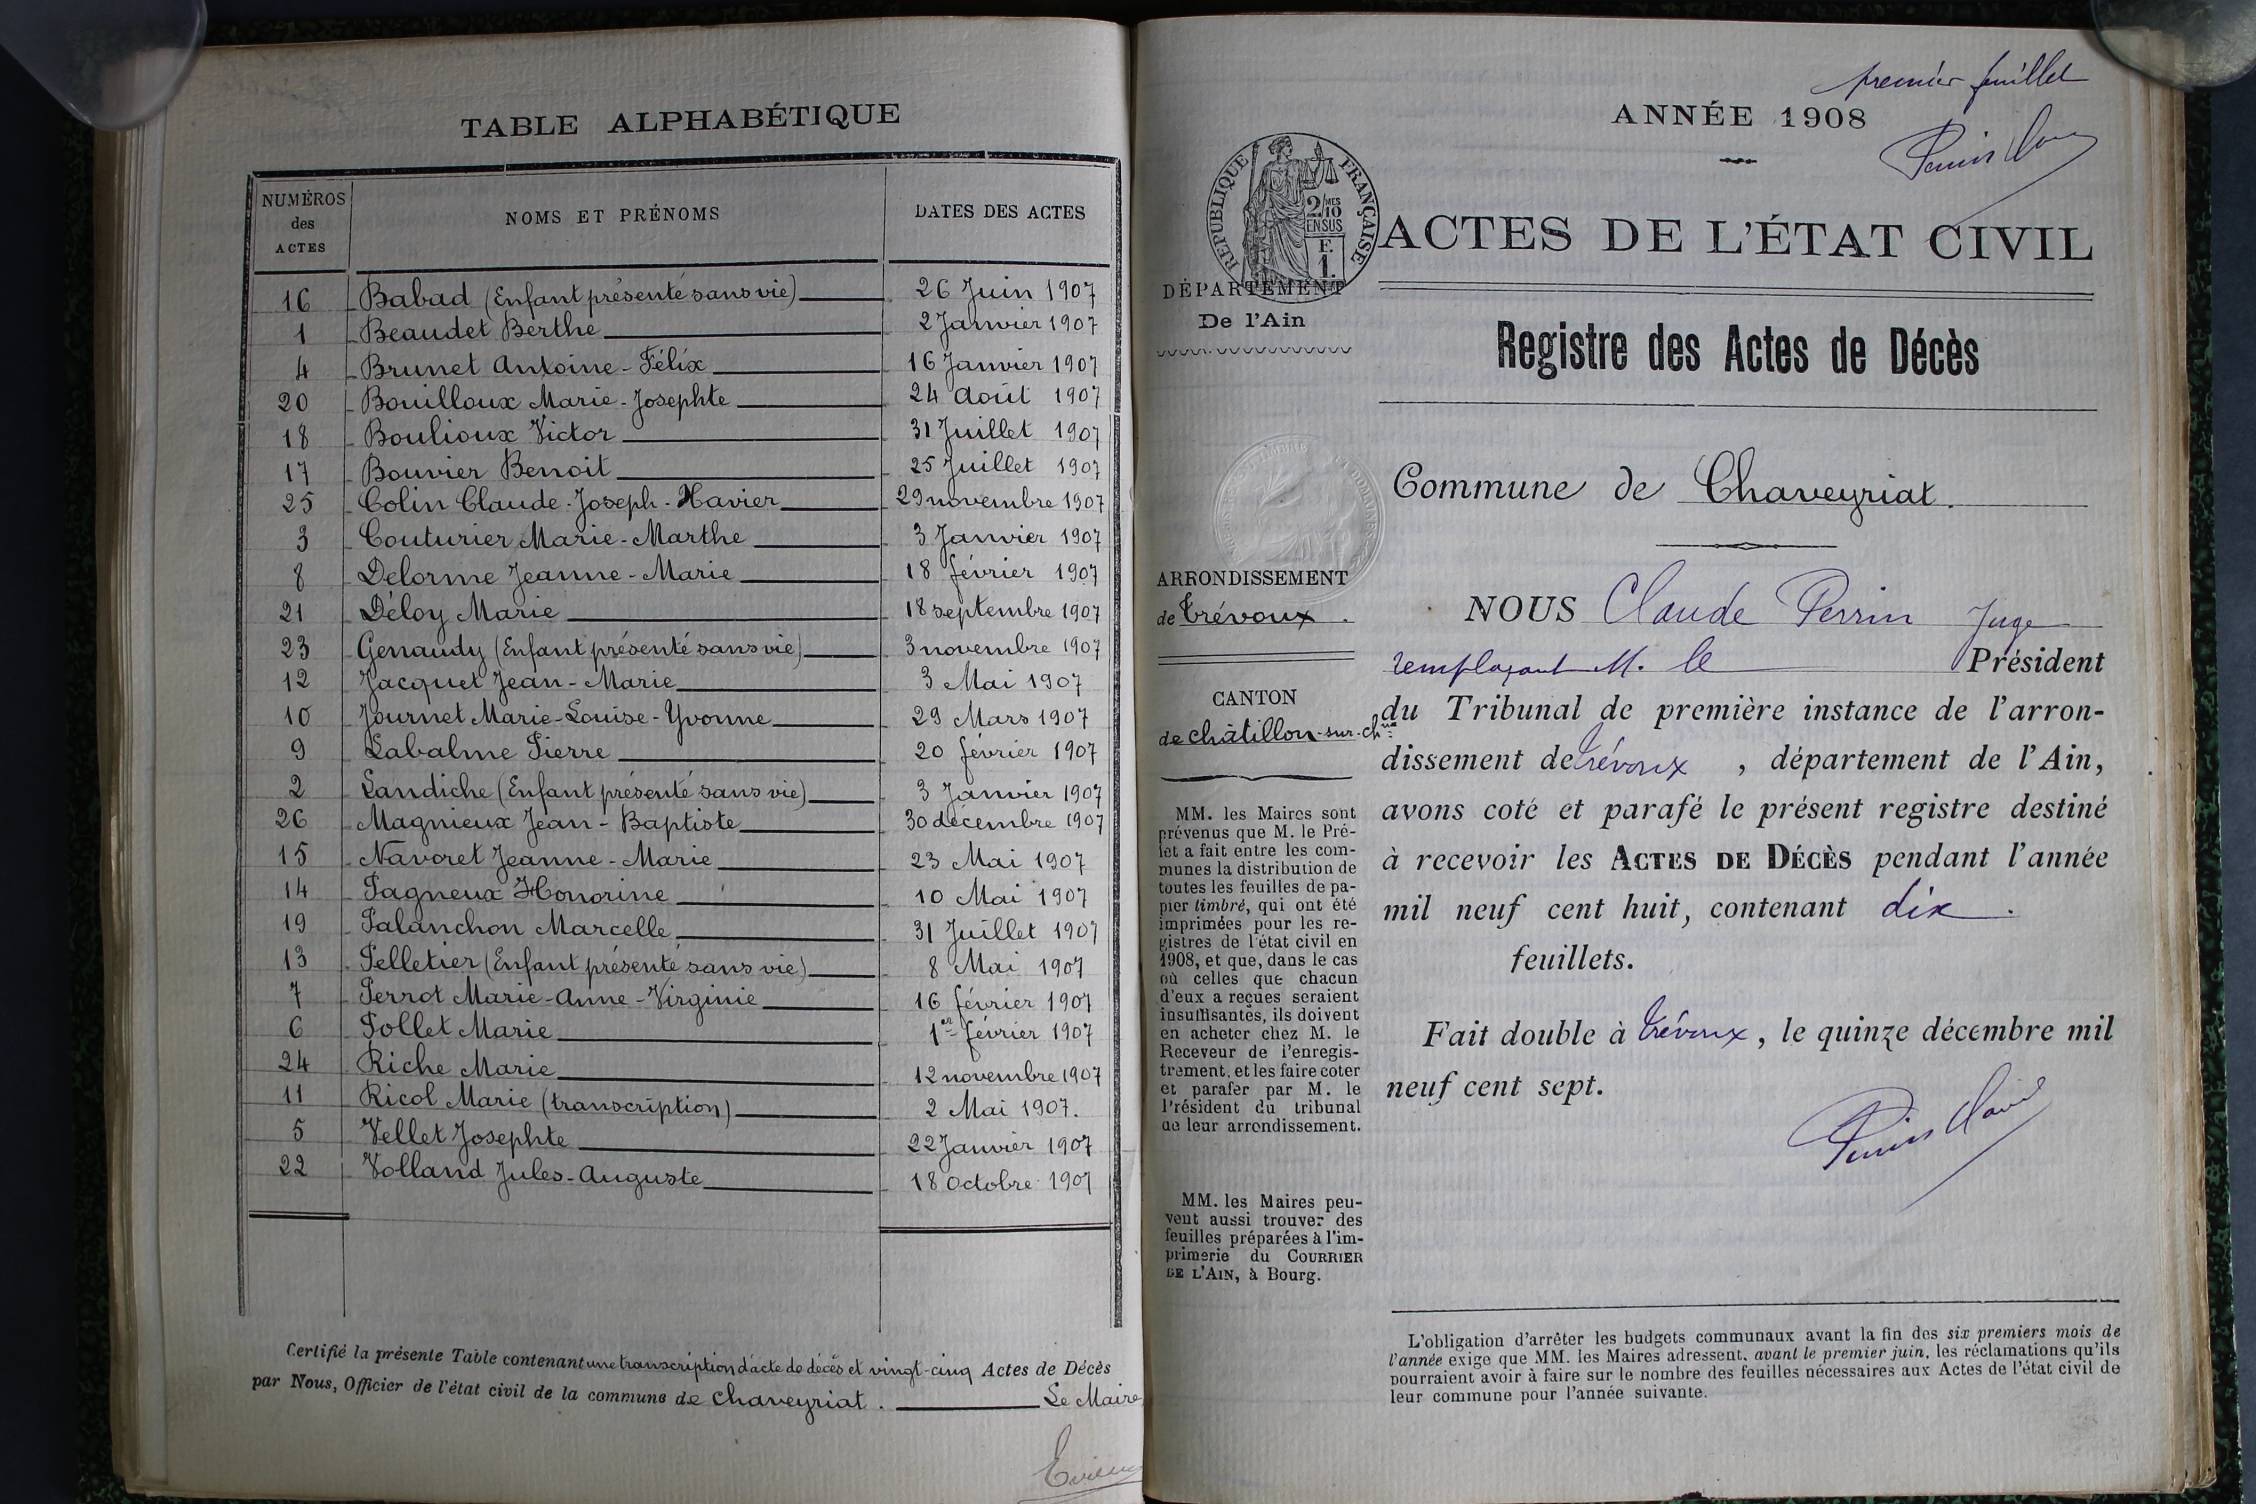 TABLE ALPHABÉTIQUE
NUMÉROS des ACTES NOMS ET PRÉNOMS DATES DES ACTES
16 Babad (Enfant présenté sans vie) 26 Juin 1907
1 Beaudet Berthe 2 Janvier 1907
4 Brunet Antoine-Félix 16 Janvier 1907
20 Bouilloux Marie-Josephte 24 août 1907
18 Boulioux Victor 31 Juillet 1907
17 Bouvier Benoit 25 Juillet 1907
25 Colin Claude-Joseph-Xavier 29 novembre 1907
3 Couturier Marie-Marthe 3 Janvier 1907
8 Delorme Jeanne-Marie 18 février 1907
21 Déloy Marie 18 septembre 1907
23 Genaudy (Enfant présenté sans vie) 3 novembre 1907
12 Jacquet Jean-Marie 3 Mai 1907
10 Journet Marie-Louise-Yvonne 29 Mars 1907
9 Labalme Pierre 20 février 1907
2 Landiche (Enfant présenté sans vie) 3 Janvier 1907
26 Magnieux Jean-Baptiste 30 décembre 1907
15 Navoret Jeanne-Marie 23 Mai 1907
14 Pagneux Honorine 10 Mai 1907
19 Palanchon Marcelle 31 Juillet 1907
13 Pelletier (Enfant présenté sans vie) 8 Mai 1907
7 Perrot Marie-Anne-Virginie 16 février 1907
6 Pollet Marie 1er février 1907
24 Riche Marie 12 novembre 1907
11 Ricol Marie (transcription) 2 Mai 1907.
5 Vellet Josephte 22 Janvier 1907
22 Volland Jules-Auguste 18 Octobre 1907
Certifié la présente Table contenant une transcription d'acte de décès et vingt-cinq Actes de Décès
par Nous, Officier de l'état civil de la commune de Chaveyriat. Le Maire,
premier feuillet
ANNÉE 1908
RÉPUBLIQUE FRANÇAISE
2/10 MES
EN SUS
F.
1.
ACTES DE L'ÉTAT CIVIL
DÉPARTEMENT
De l'Ain
Registre des Actes de Décès
Commune de Chaveyriat.
ARRONDISSEMENT
de Trévoux.
CANTON
de châtillon-sur-chne
MM. les Maires sont
prévenus que M. le Pré-
fet a fait entre les com-
munes la distribution de
toutes les feuilles de pa-
pier timbré, qui ont été
imprimées pour les re-
gistres de l'état civil en
1908, et que, dans le cas
où celles que chacun
d'eux a reçues seraient
insuffisantes, ils doivent
en acheter chez M. le
Receveur de l'enregis-
trement, et les faire coter
et parafer par M. le
Président du tribunal
de leur arrondissement.
MM. les Maires peu-
vent aussi trouver des
feuilles préparées à l'im-
primerie du COURRIER
DE L'AIN, à Bourg.
NOUS Claude Perrin Juge
remplaçant M. le Président
du Tribunal de première instance de l'arron-
dissement de Trévoux, département de l'Ain,
avons coté et parafé le présent registre destiné
à recevoir les ACTES DE DÉCÈS pendant l'année
mil neuf cent huit, contenant dix.
feuillets.
Fait double à Trévoux, le quinze décembre mil
neuf cent sept.
L'obligation d'arrêter les budgets communaux avant la fin des six premiers mois de
l'année exige que MM. les Maires adressent, avant le premier juin, les réclamations qu'ils
pourraient avoir à faire sur le nombre des feuilles nécessaires aux Actes de l'état civil de
leur commune pour l'année suivante.